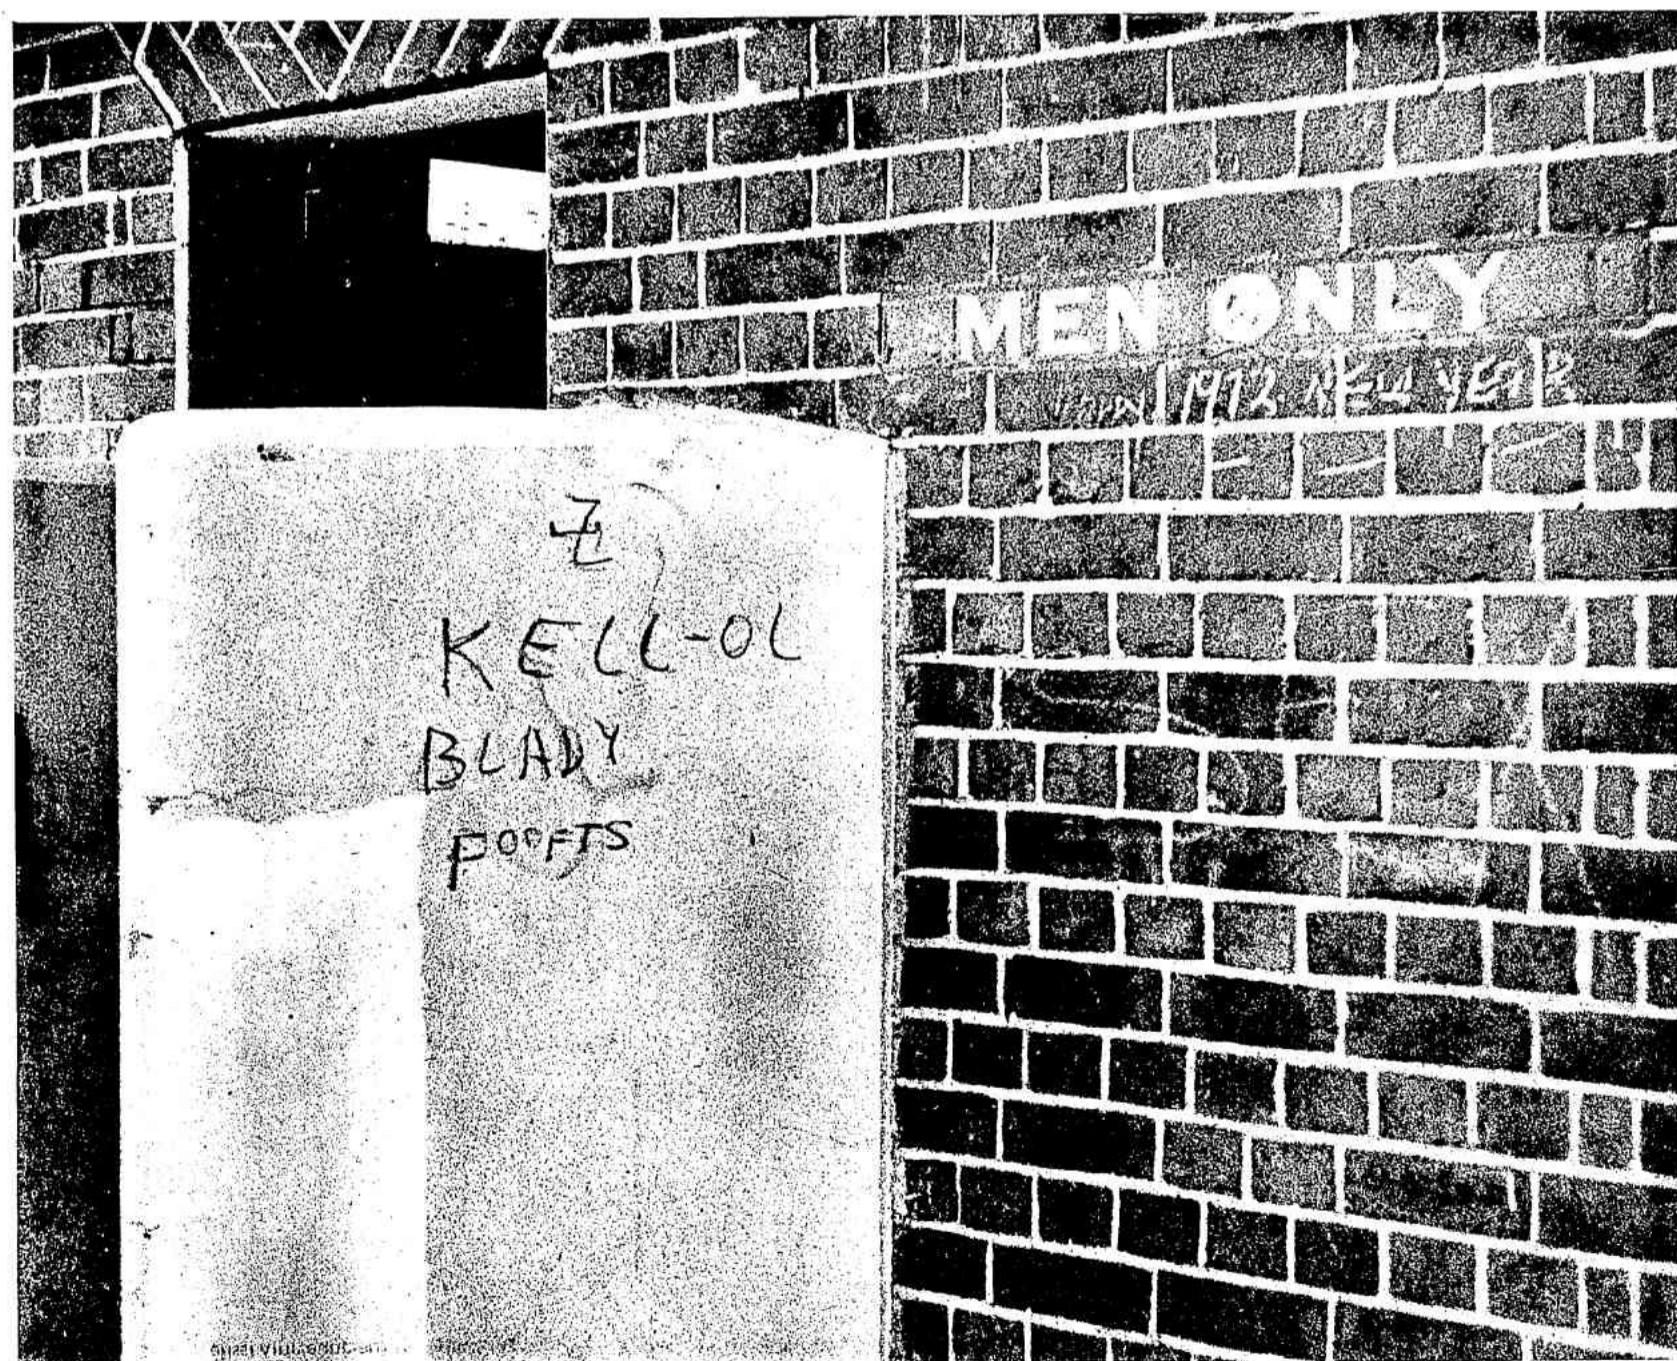 MEN ONLY
1972 NEW YEAR
KELL-OL
BLADY
POOFTS